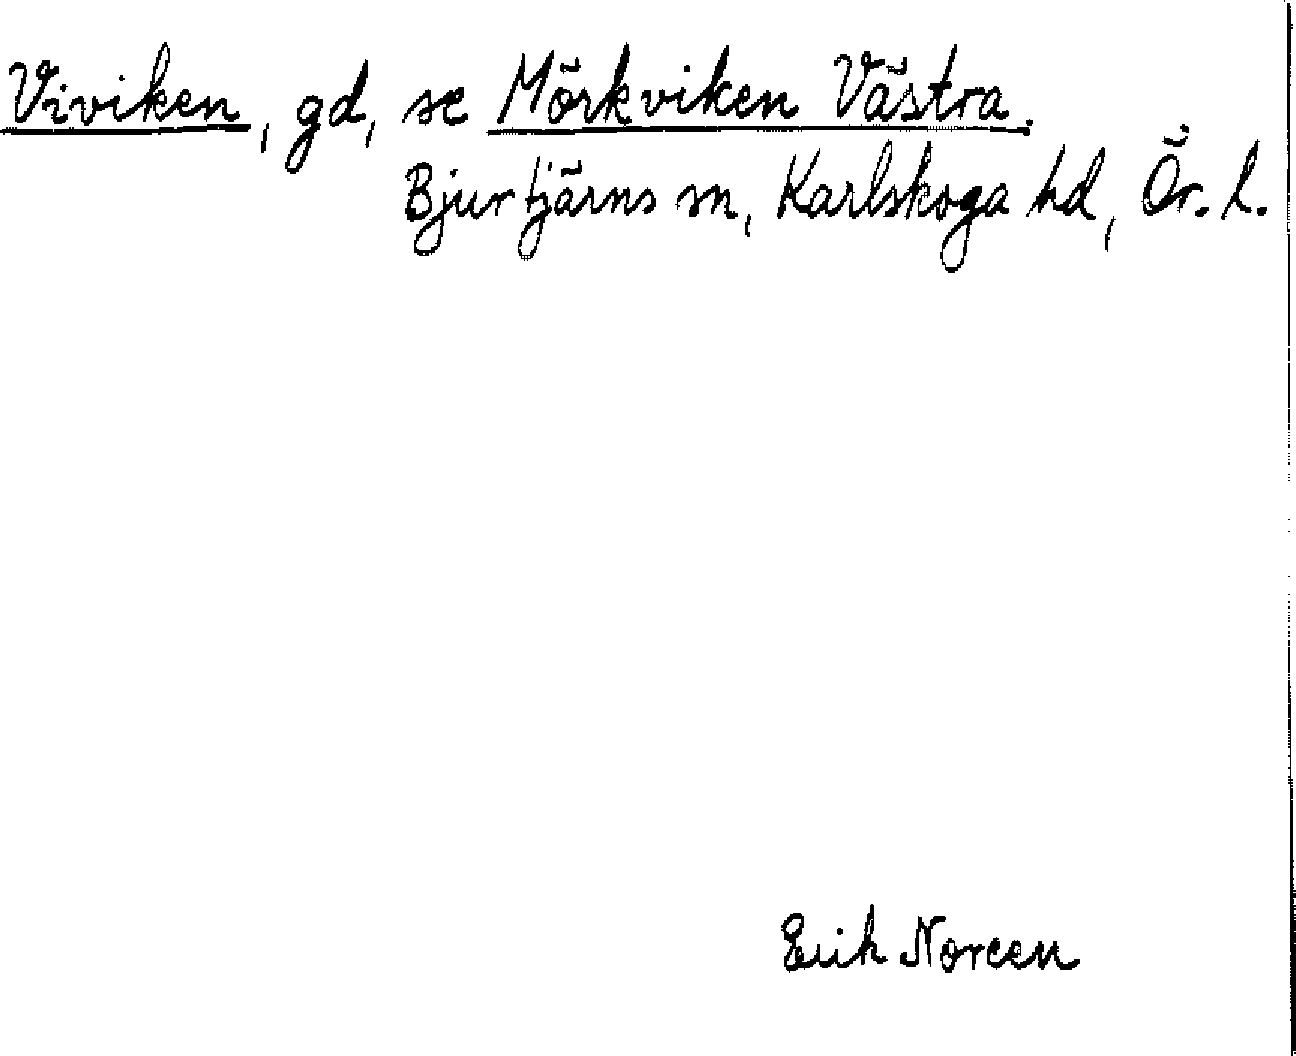 Viviken, gd, se Mörkviken Västra.
Bjurtjärns sn, Karlskoga hd, Ör. l.
Erik Noreen